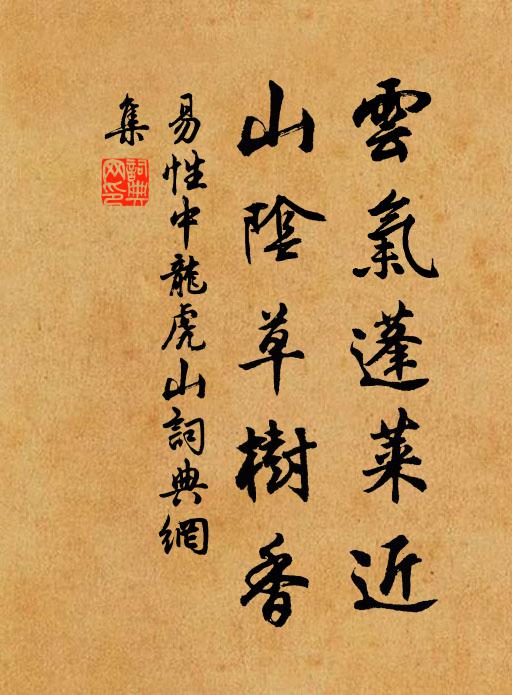 雲氣蓬萊近
山陰草樹香
易性中龍虎山詞典網
集
詞典
网印